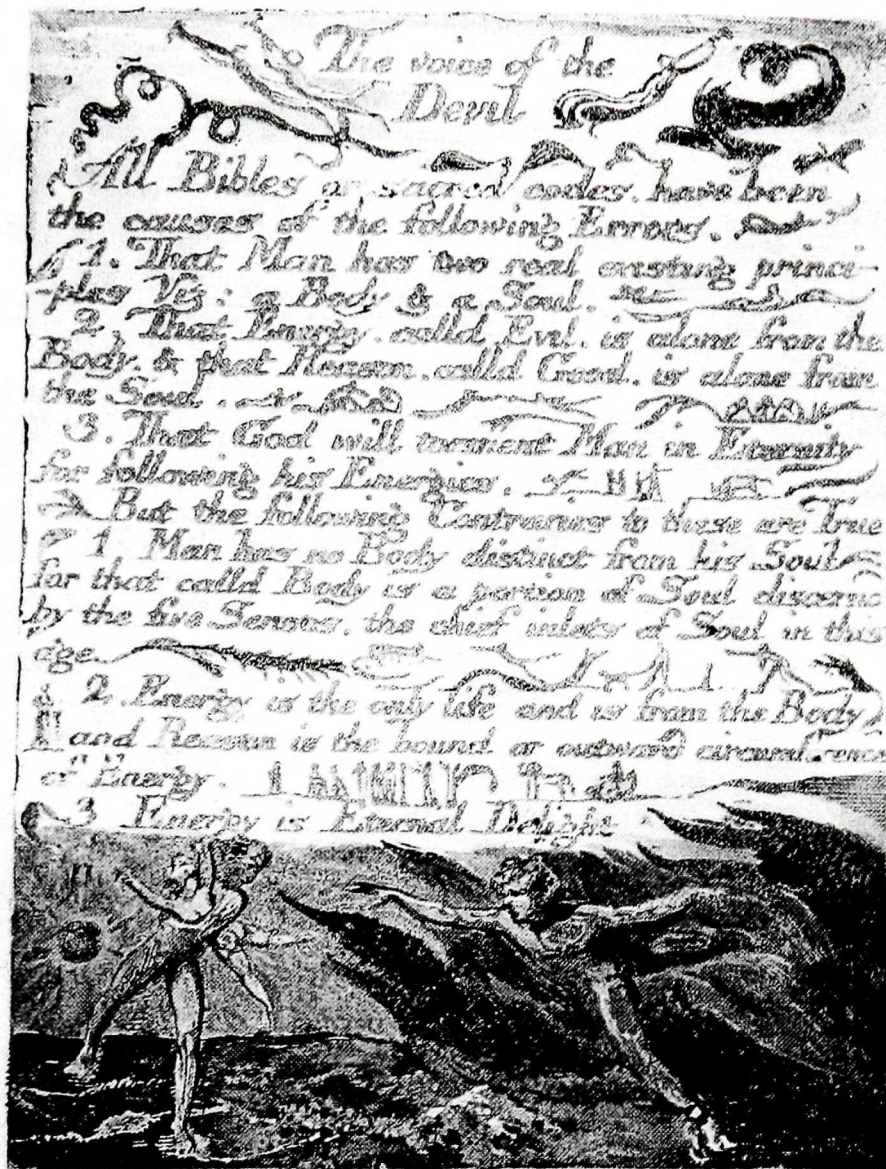 The voice of the
Devil
All Bibles or sacred codes. have been
the causes of the following Errors.
1. That Man has two real existing princi-
-ples Viz: a Body & a Soul.
2. That Energy. calld Evil. is alone from the
Body. & that Reason. calld Good. is alone from
the Soul.
3. That God will torment Man in Eternity
for following his Energies.
But the following Contraries to these are True
1 Man has no Body distinct from his Soul
for that calld Body is a portion of Soul discernd
by the five Senses. the chief inlets of Soul in this
age
2. Energy is the only life and is from the Body
and Reason is the bound or outward circumference
of Energy.
3 Energy is Eternal Delight